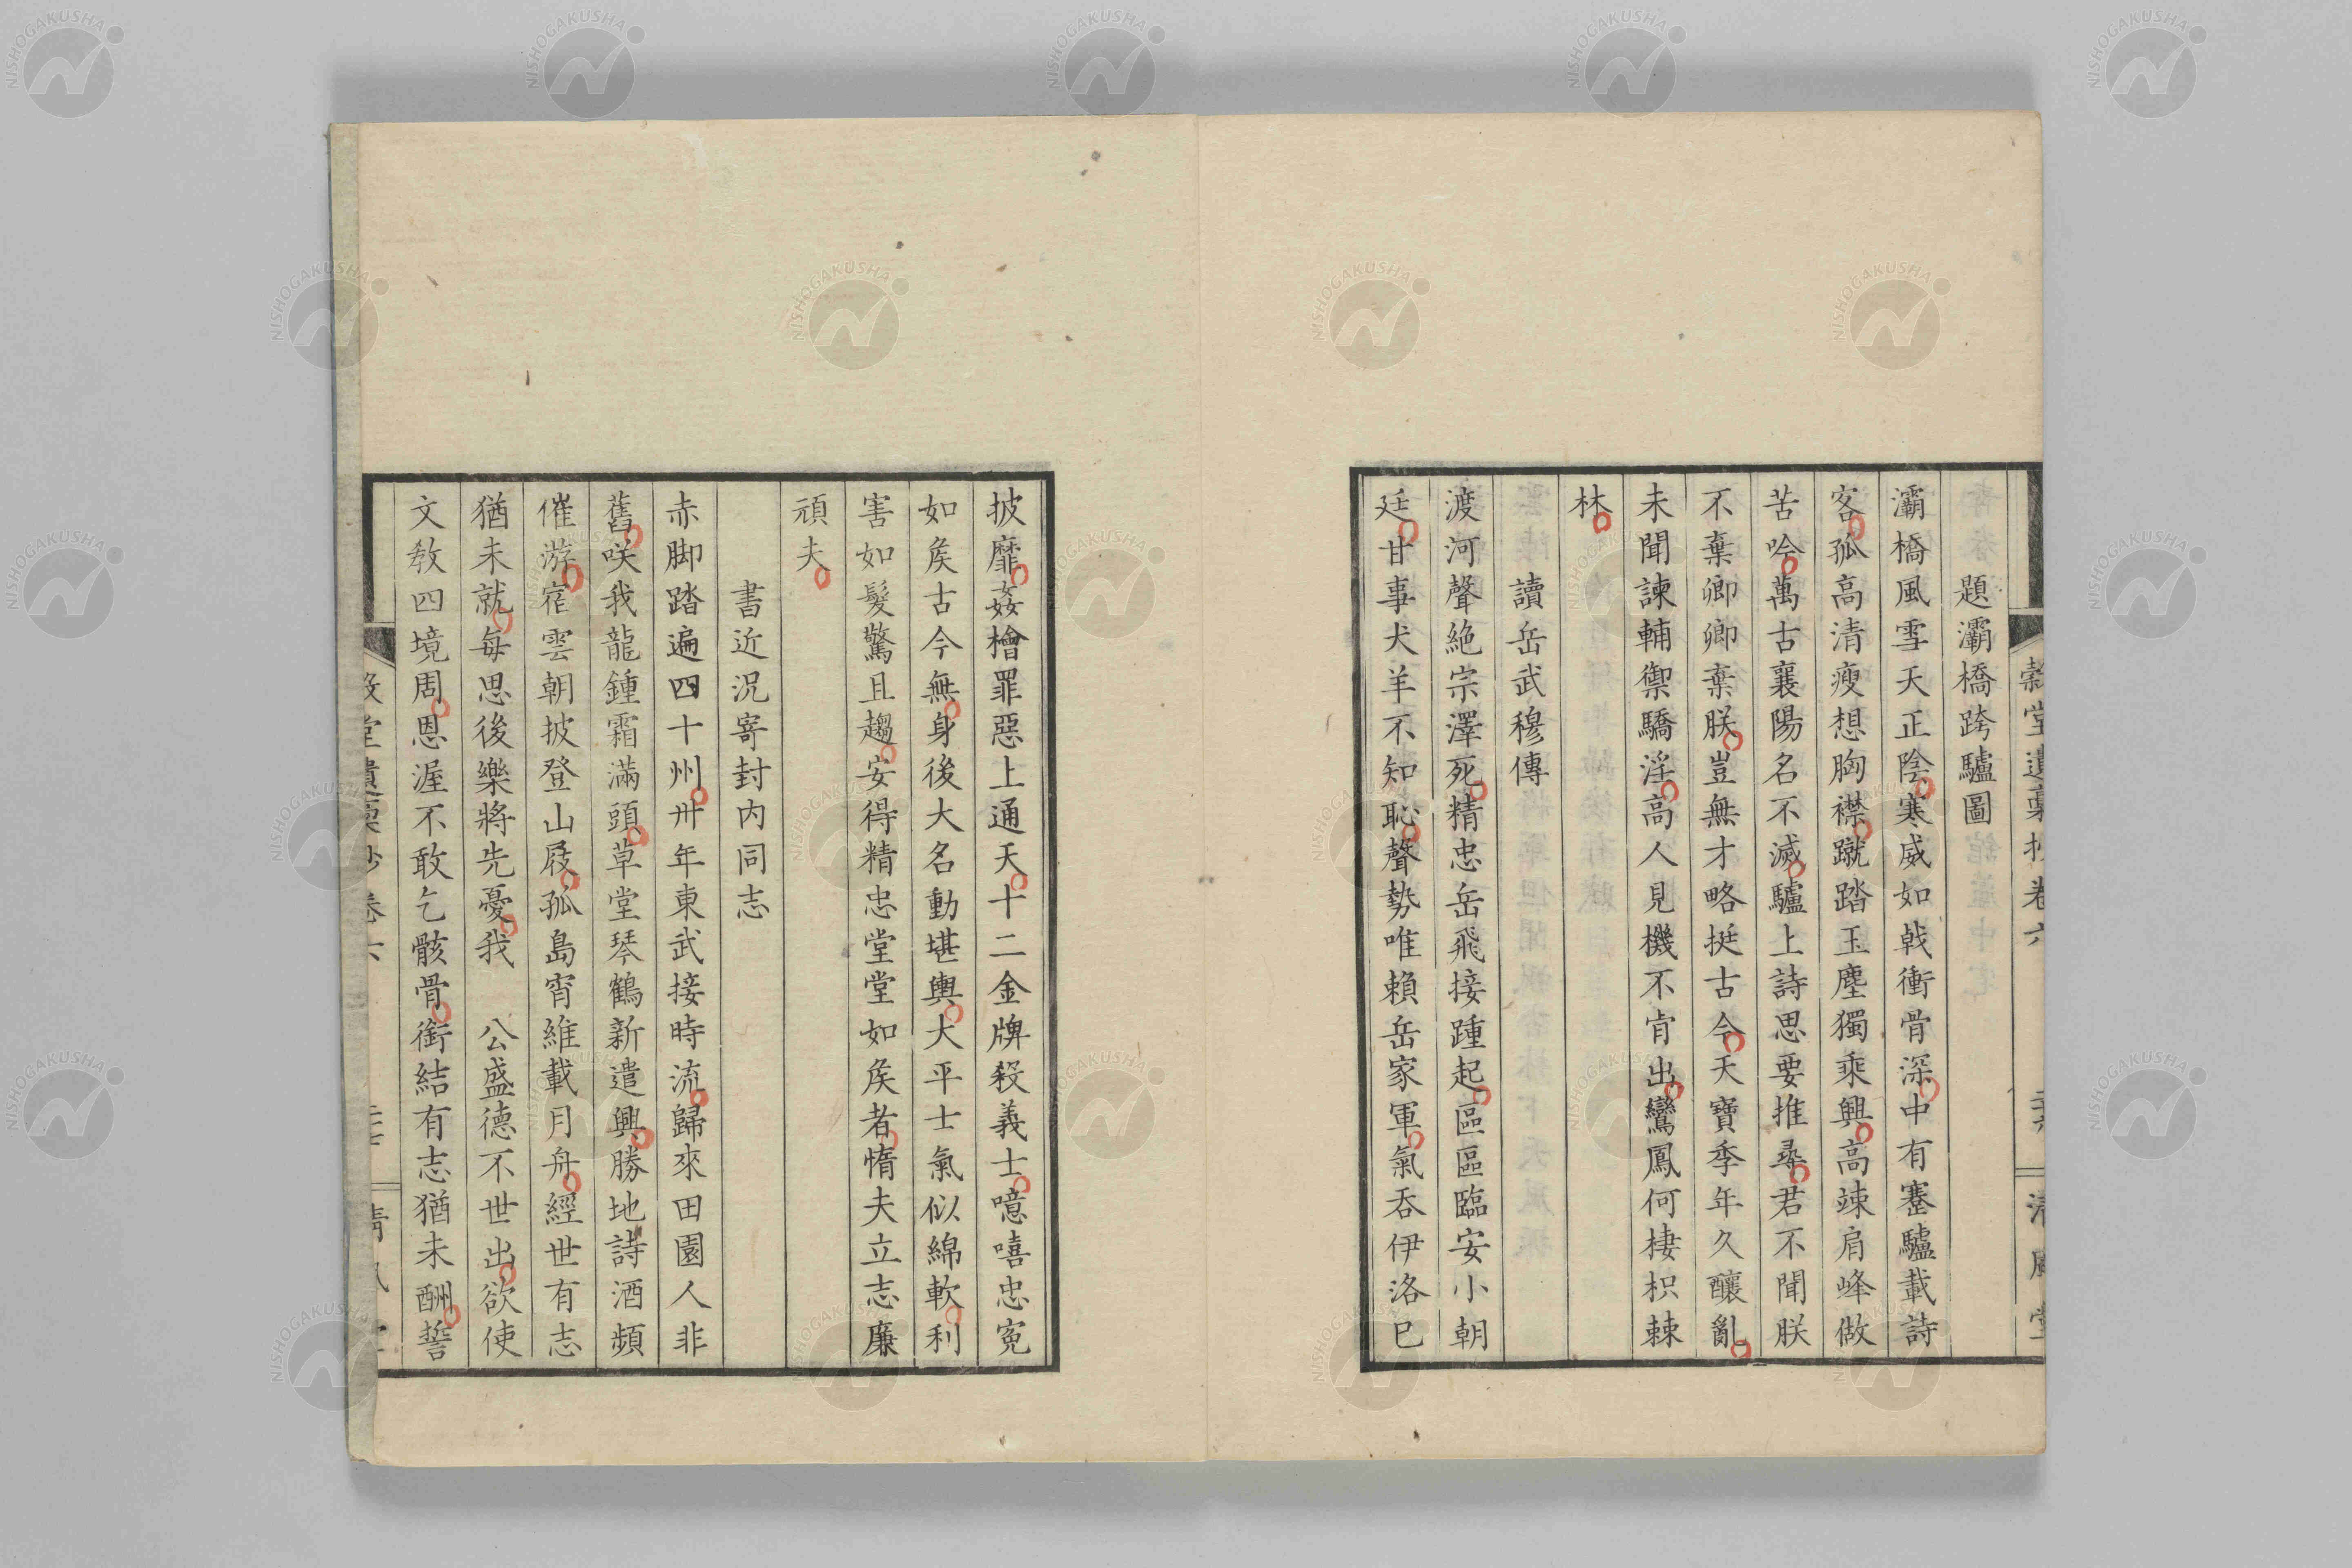 題灞橋跨驢圖
灞橋風雪天正陰寒威如戟衝骨深中有蹇驢載詩
客孤高清瘦想胸襟蹴踏玉塵獨乘興高竦肩峰做
苦吟萬古襄陽名不滅驢上詩思要推尋君不聞朕
不棄卿卿棄朕豈無才略挺古今天寶季年久釀亂
未聞諫輔禦驕淫高人見機不肯出鸞鳳何棲枳棘
林
讀岳武穆傳
渡河聲絶宗澤死精忠岳飛接踵起區區臨安小朝
廷甘事犬羊不知恥聲勢唯賴岳家軍氣吞伊洛已
披靡姦檜罪惡上通天十二金牌殺義士噫嘻忠寃
如矦古今無身後大名動堪輿大平士氣似綿軟利
害如髮驚且趨安得精忠堂堂如矦者惰夫立志廉
頑夫
書近況寄封内同志
赤脚踏遍四十州卅年東武接時流歸來田園人非
舊咲我龍鍾霜滿頭草堂琴鶴新遣興勝地詩酒頻
催游宿雲朝披登山屐孤島宵維載月舟經世有志
猶未就每思後樂將先憂我 公盛德不世出欲使
文教四境周恩渥不敢乞骸骨銜結有志猶未酬誓
堂遺稾抄卷六
NISHOGAKUSHA